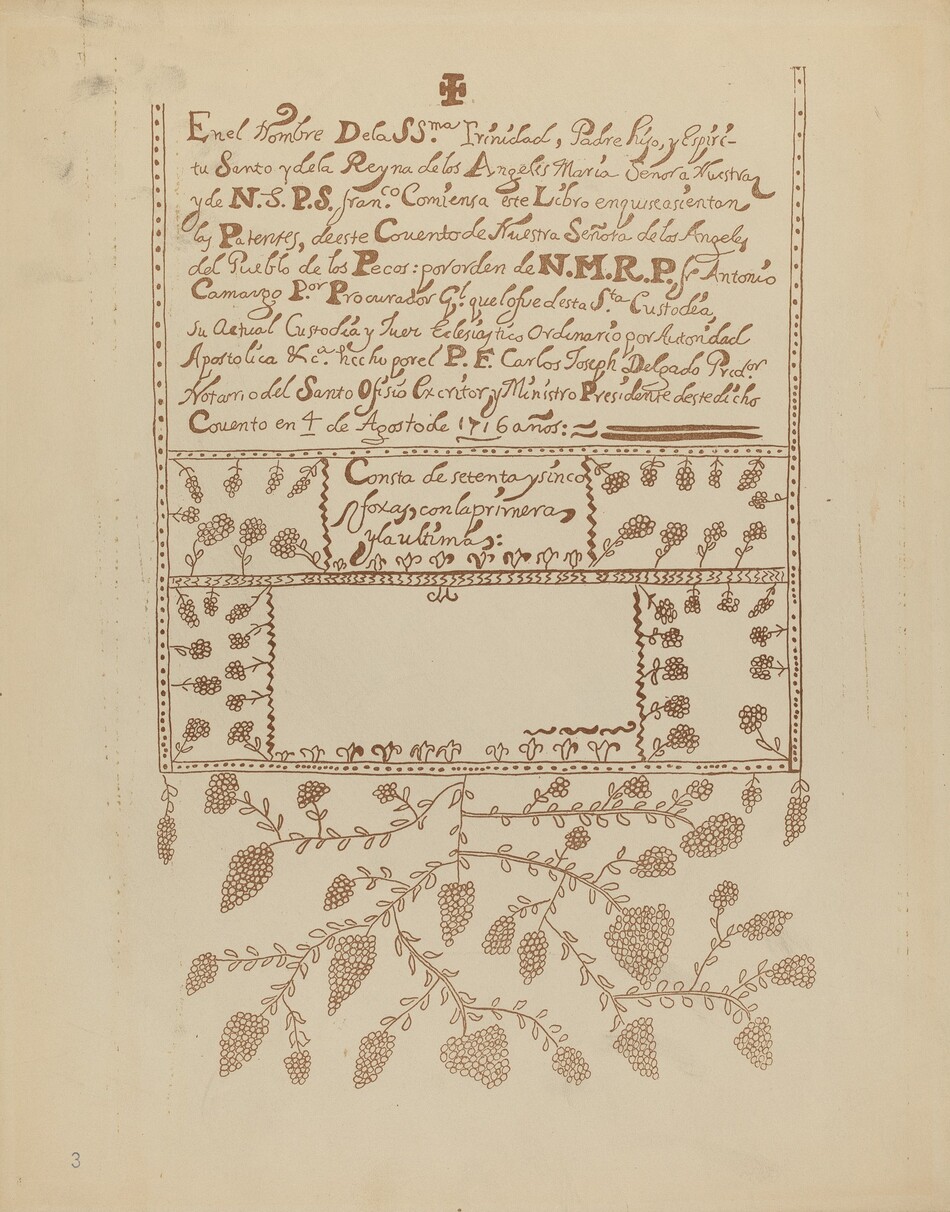 En el Nombre De la SS.ma Trinidad, Padre hijo, y Espiri-
tu Santo y dela Reyna de los Angeles Maria Señora Nuestra
y de N.S. P.S. fran.co Comiensa este Libro en que se asientan
las Patentes, de este Covento de Nuestra Señora de los Angeles
del Pueblo de los Pecos: por orden de N.M.R.P. fr Antonio
Camargo P.or Procurador G.l que lo fue desta S.ta Custodia,
su Actual Custodia y Juez Eclesiastico Ordinario por Autoridad
Apostolica &c.a hecho por el P. F. Carlos Joseph Delgado Pred.or
Notario del Santo Ofisio Excritor y Ministro Presidente deste dicho
Covento en 4 de Agosto de 1716 años:
Consta de setenta y sinco
foxas, con la primera
y la ultima:
3